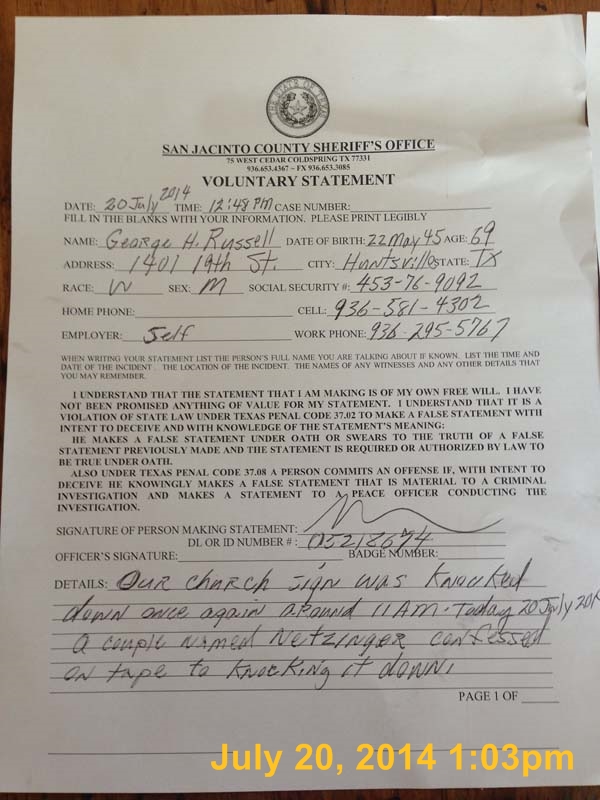 THE STATE OF TEXAS
SAN JACINTO COUNTY SHERIFF'S OFFICE
75 WEST CEDAR COLDSPRING TX 77331
936.653.4367 ~ FX 936.653.3085
VOLUNTARY STATEMENT
DATE: 20 July 2014 TIME: 12:48 PM CASE NUMBER:
FILL IN THE BLANKS WITH YOUR INFORMATION. PLEASE PRINT LEGIBLY
NAME: George H. Russell DATE OF BIRTH: 22 May 45 AGE: 69
ADDRESS: 1401 19th St. CITY: Huntsville STATE: TX
RACE: W SEX: M SOCIAL SECURITY #: 453-76-9092
HOME PHONE: CELL: 936-581-4302
EMPLOYER: Self WORK PHONE: 936-295-5767
WHEN WRITING YOUR STATEMENT LIST THE PERSON'S FULL NAME YOU ARE TALKING ABOUT IF KNOWN. LIST THE TIME AND
DATE OF THE INCIDENT. THE LOCATION OF THE INCIDENT. THE NAMES OF ANY WITNESSES AND ANY OTHER DETAILS THAT
YOU MAY REMEMBER.
I UNDERSTAND THAT THE STATEMENT THAT I AM MAKING IS OF MY OWN FREE WILL. I HAVE
NOT BEEN PROMISED ANYTHING OF VALUE FOR MY STATEMENT. I UNDERSTAND THAT IT IS A
VIOLATION OF STATE LAW UNDER TEXAS PENAL CODE 37.02 TO MAKE A FALSE STATEMENT WITH
INTENT TO DECEIVE AND WITH KNOWLEDGE OF THE STATEMENT'S MEANING:
HE MAKES A FALSE STATEMENT UNDER OATH OR SWEARS TO THE TRUTH OF A FALSE
STATEMENT PREVIOUSLY MADE AND THE STATEMENT IS REQUIRED OR AUTHORIZED BY LAW TO
BE TRUE UNDER OATH.
ALSO UNDER TEXAS PENAL CODE 37.08 A PERSON COMMITS AN OFFENSE IF, WITH INTENT TO
DECEIVE HE KNOWINGLY MAKES A FALSE STATEMENT THAT IS MATERIAL TO A CRIMINAL
INVESTIGATION AND MAKES A STATEMENT TO A PEACE OFFICER CONDUCTING THE
INVESTIGATION.
SIGNATURE OF PERSON MAKING STATEMENT:
DL OR ID NUMBER #: 05218674
OFFICER'S SIGNATURE: BADGE NUMBER:
DETAILS: Our church sign was knocked
down once again around 11 AM. Today 20 July
A couple named Netzinger confessed
on tape to knocking it down.
PAGE 1 OF
July 20, 2014 1:03pm